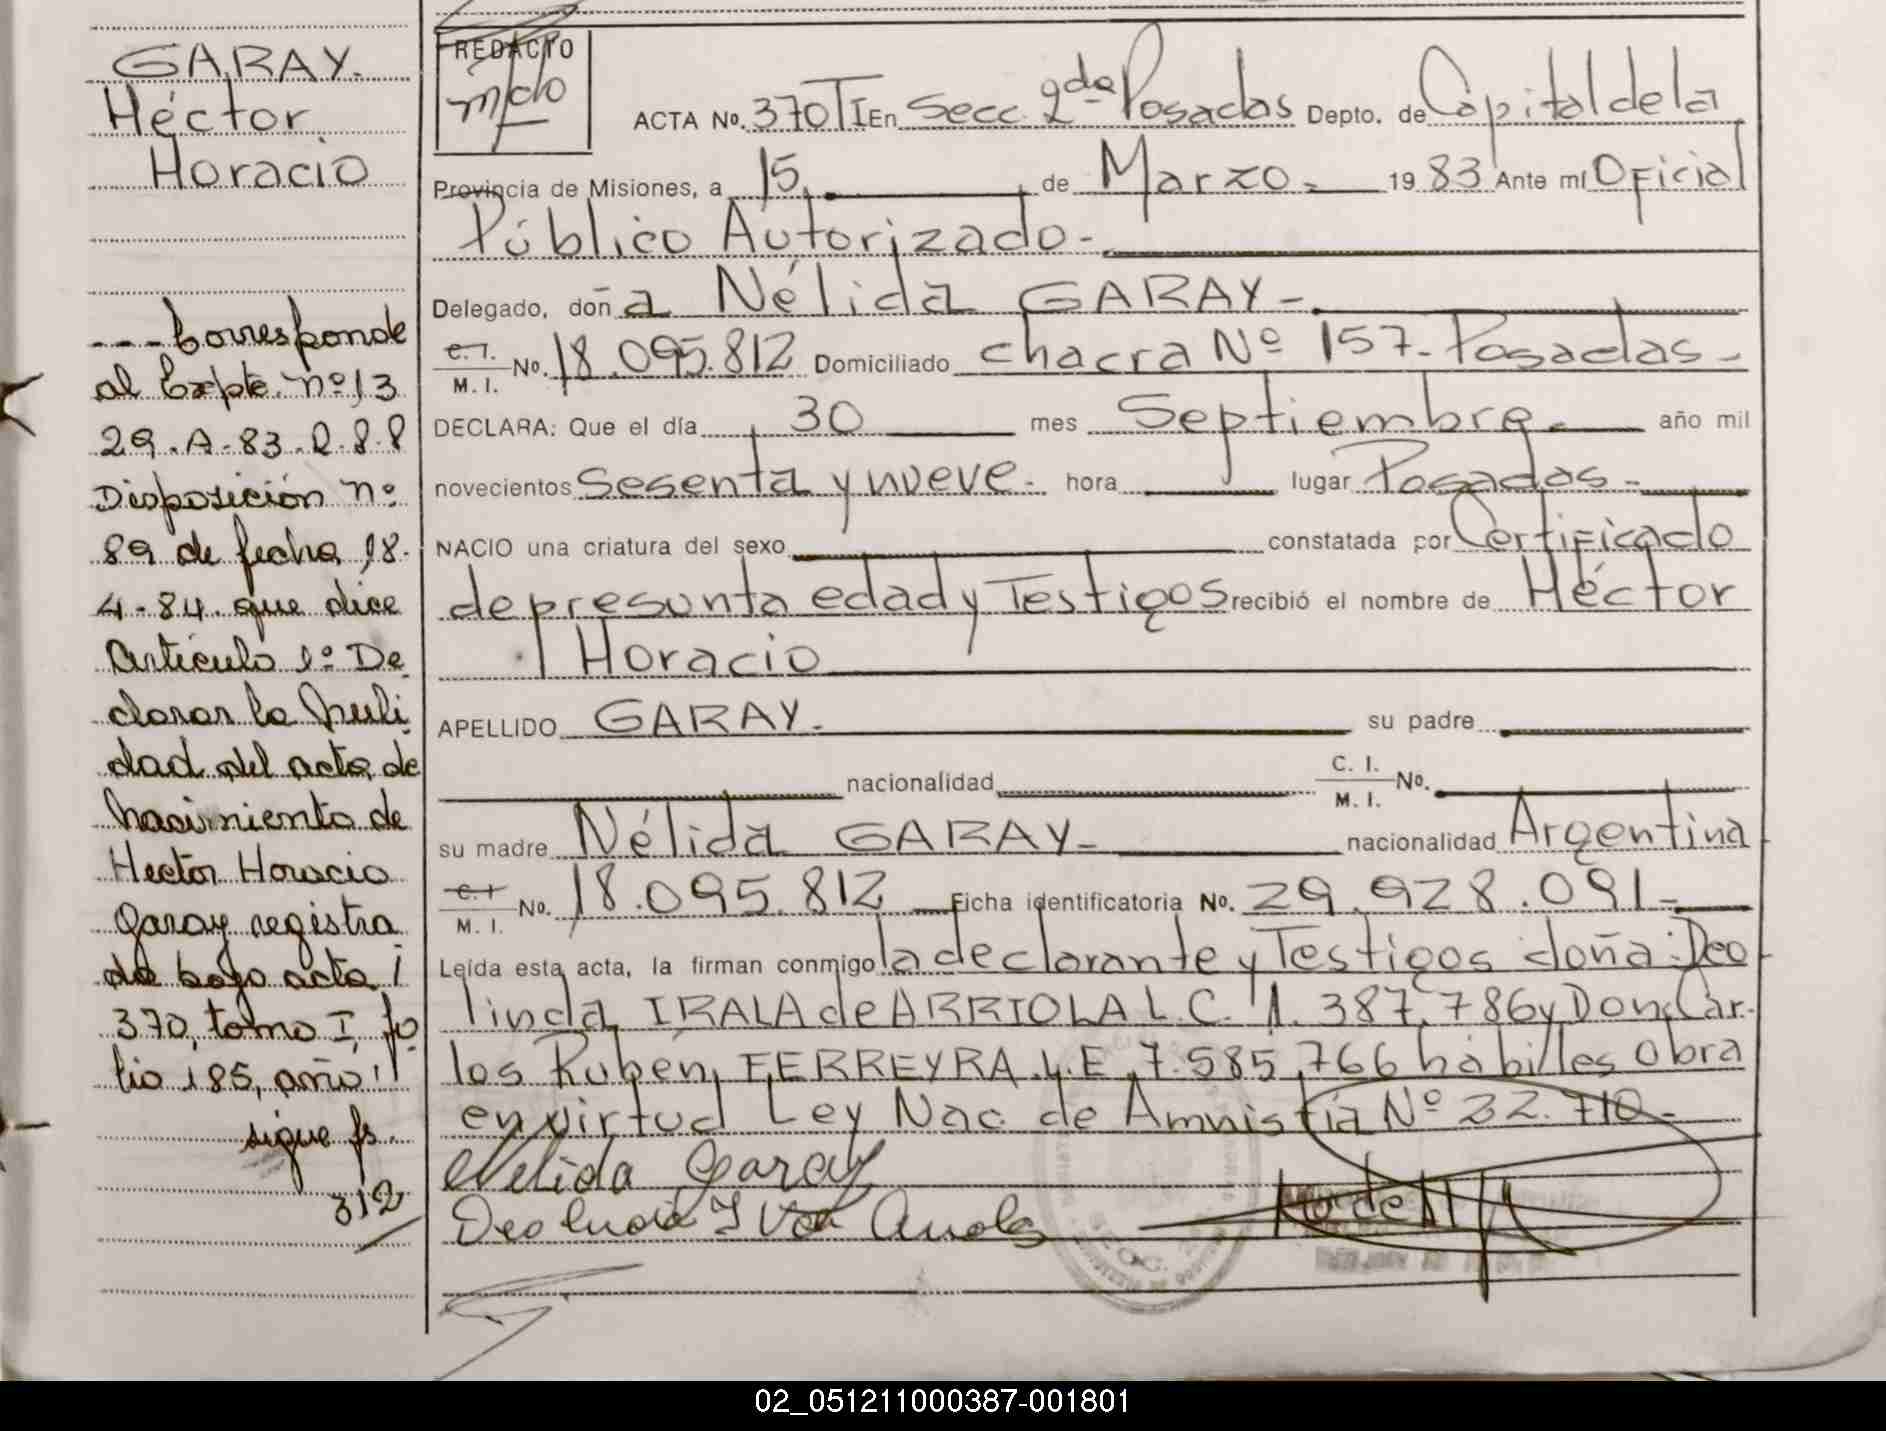 GARAY.
Héctor
Horacio
---Corresponde
al Expte. nº 13
29.A-83.R.8.8
Disposición nº
89 de fecha 18.
4-84. que dice
Artículo 1º De
clarar la Nuli
dad del acta de
nacimiento de
Hector Horacio
Garay registra
da bajo acta
370, tomo I, fo
lio 185, año
sigue fs.
312
REDACTO
ACTA No. 370 TI En Secc. 2da Posadas Depto. de Capital de la
Provincia de Misiones, a 15, de Marzo.- 1983 Ante mí Oficial
Público Autorizado-.
Delegado, doña Nélida GARAY-
C.I. / M.I. No. 18.095.812 Domiciliado chacra Nº 157-Posadas-
DECLARA: Que el día 30 mes Septiembre.- año mil
novecientos Sesenta y nueve- hora lugar Posadas-
NACIO una criatura del sexo constatada por Certificado
de presunta edad y Testigos recibió el nombre de Héctor
Horacio
APELLIDO GARAY. su padre
nacionalidad C. I. / M. I. No.
su madre Nélida GARAY- nacionalidad Argentina
C.I. / M. I. No. 18.095.812 Ficha identificatoria No. 29.928.091-
Leída esta acta, la firman conmigo la declarante y Testigos doña: Deo
linda IRALA de ARRIOLA L.C. 1.387.786 y Don Car-
los Rubén FERREYRA L.E. 7.585.766 hábilles obra
en virtud Ley Nac. de Amnistía Nº 22.710-
Nelida Garay
02_051211000387-001801